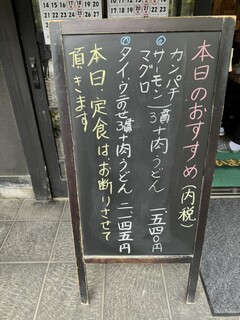 本日のおすすめ(内税)
カンパチ
サーモン
マグロ
3貫+肉うどん 一、五四〇円
タイ、ウニのせ3貫+肉うどん 二、一四五円
本日、定食はお断りさせて
頂きます